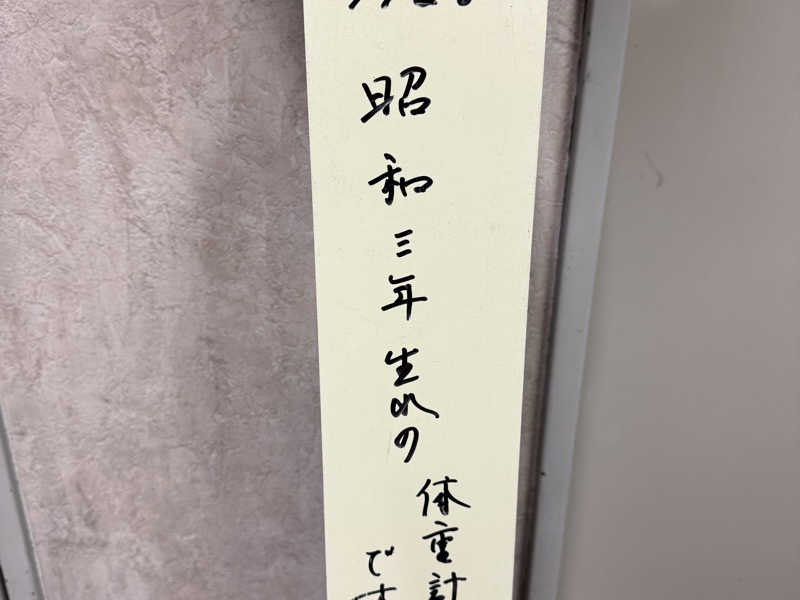 昭和三年生れの
体重計
です